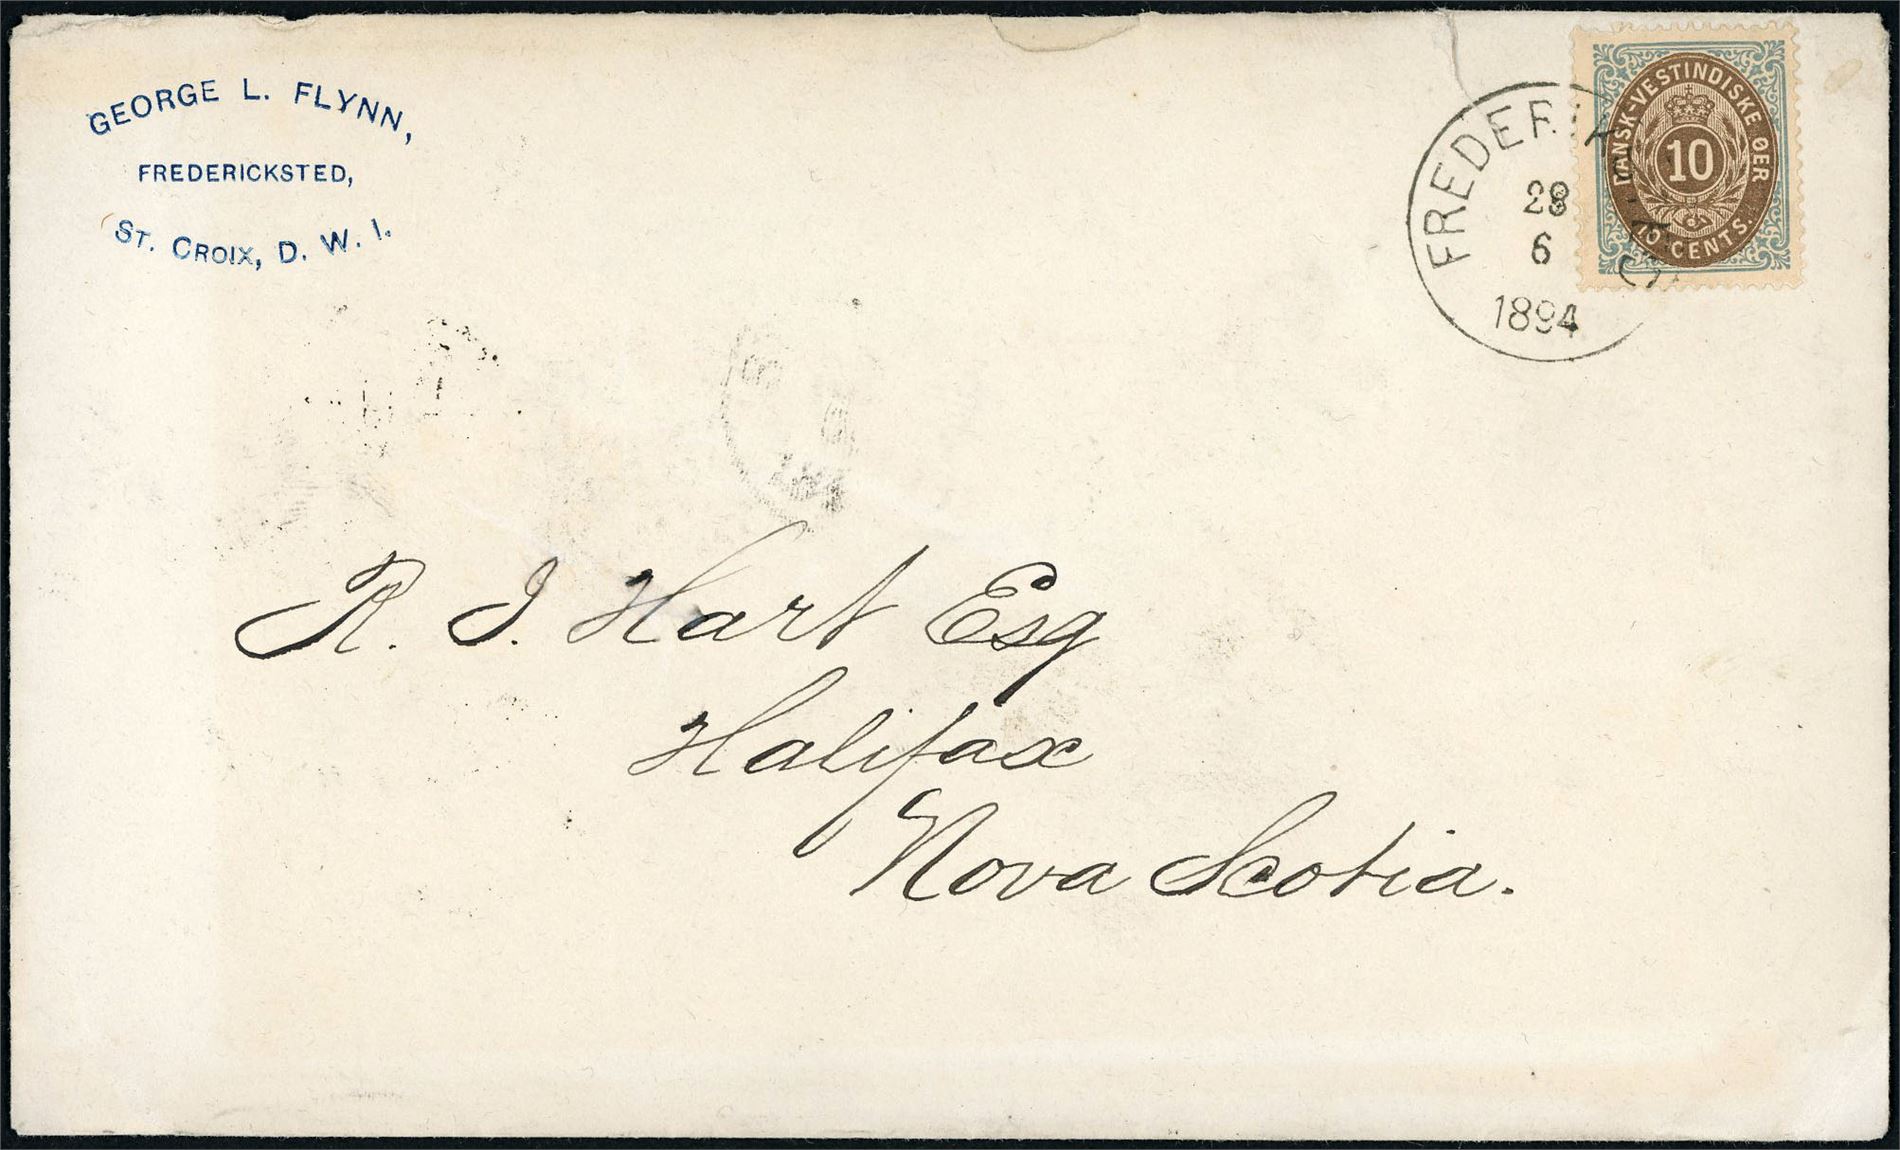 GEORGE L. FLYNN,
FREDERICKSTED,
ST. CROIX, D. W. I.
DANSK-VESTINDISKE ØER
10
10 CENTS.
28
6
1894
R. J. Hart Esq
Halifax
Nova Scotia.